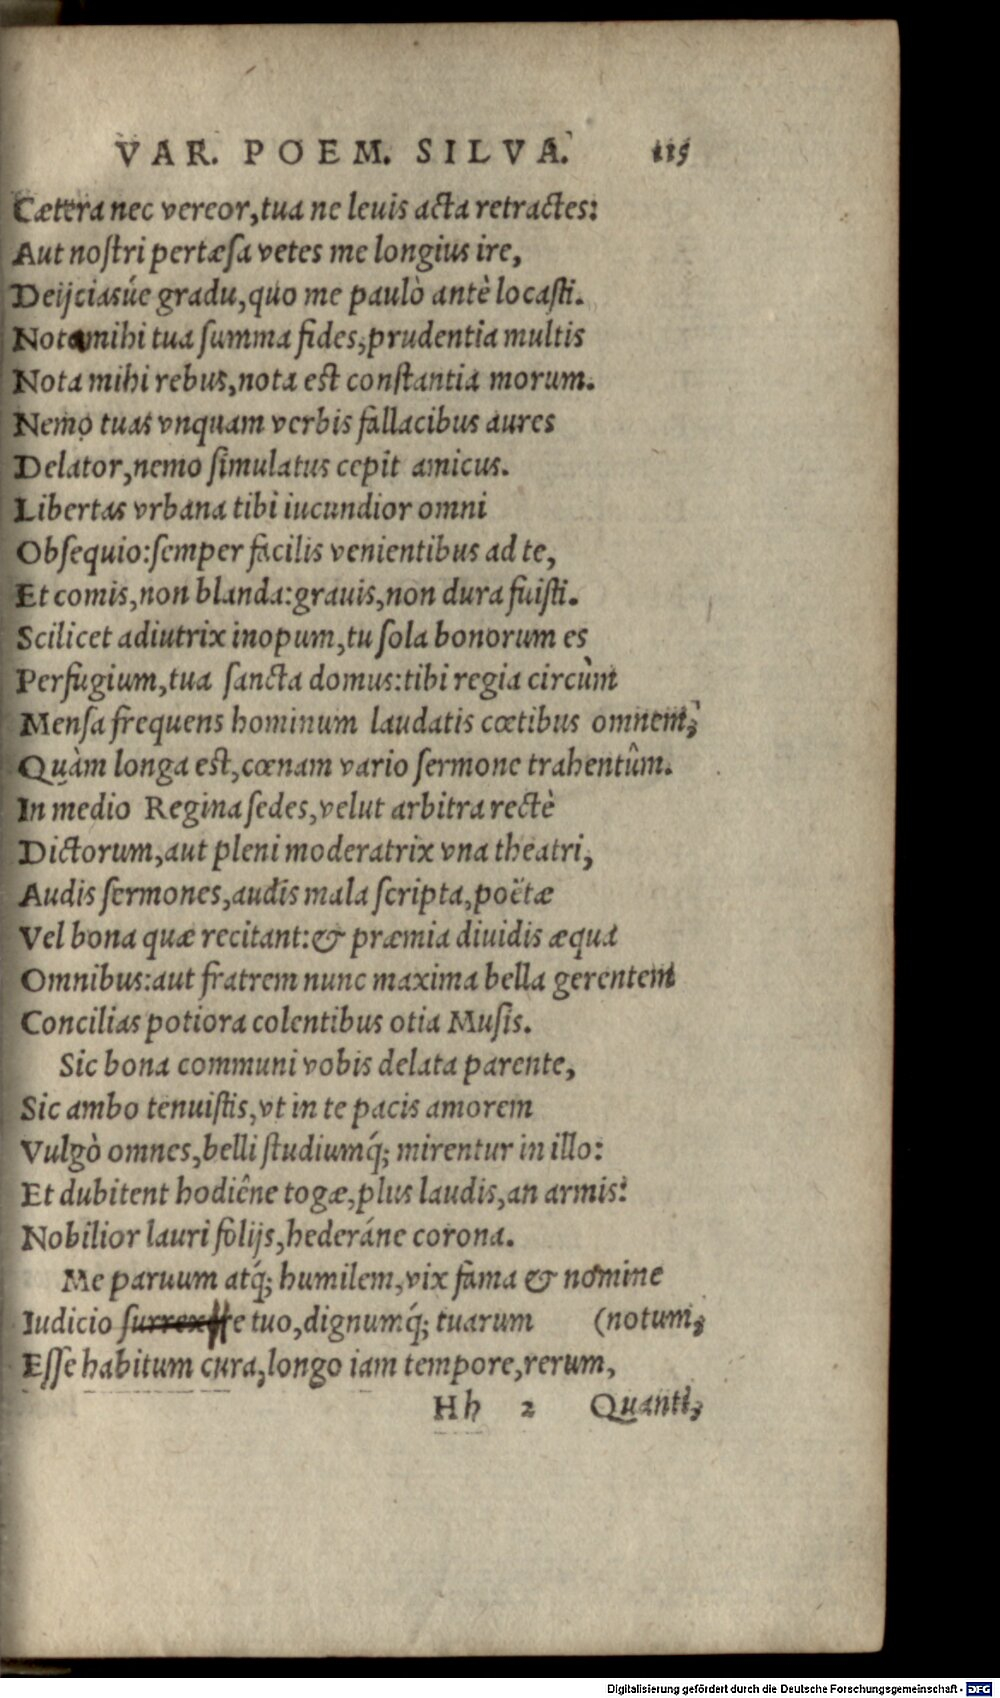 VAR. POEM. SILVA. 115
Cætera nec vereor, tua ne leuis acta retractes:
Aut nostri pertæsa vetes me longius ire,
Deijciasúe gradu, quo me paulò antè locasti.
Nota mihi tua summa fides, prudentia multis
Nota mihi rebus, nota est constantia morum.
Nemo tuas vnquam verbis fallacibus aures
Delator, nemo simulatus cepit amicus.
Libertas vrbana tibi iucundior omni
Obsequio: semper facilis venientibus ad te,
Et comis, non blanda: grauis, non dura fuisti.
Scilicet adiutrix inopum, tu sola bonorum es
Perfugium, tua sancta domus: tibi regia circùm
Mensa frequens hominum laudatis cœtibus omnem,
Quàm longa est, cœnam vario sermone trahentûm.
In medio Regina sedes, velut arbitra rectè
Dictorum, aut pleni moderatrix vna theatri,
Audis sermones, audis mala scripta, poëtæ
Vel bona quæ recitant: & præmia diuidis æqua
Omnibus: aut fratrem nunc maxima bella gerentem
Concilias potiora colentibus otia Musis.
Sic bona communi vobis delata parente,
Sic ambo tenuistis, vt in te pacis amorem
Vulgò omnes, belli studiumq́; mirentur in illo:
Et dubitent hodiêne togæ, plus laudis, an armis:
Nobilior lauri folijs, hederáne corona.
Me paruum atq́; humilem, vix fama & nomine
Iudicio surrexsse tuo, dignumq́; tuarum (notum,
Esse habitum cura, longo iam tempore, rerum,
Hh 2 Quanti,
Digitalisierung gefördert durch die Deutsche Forschungsgemeinschaft - DFG